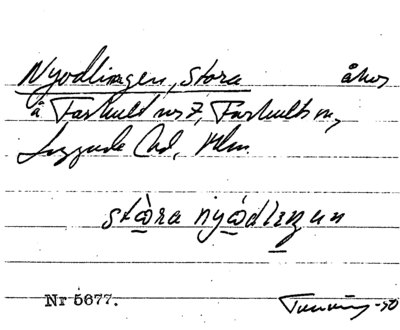 Nyodlingen, Stora åker
å Farhult nr 7, Farhults sn,
Luggude hd, Mlm.
stòra nyòdlingen
Nr 5677.